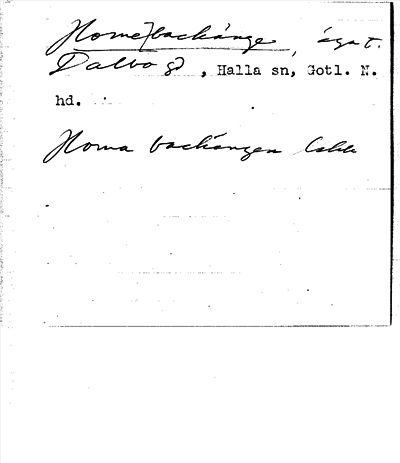 Home)backänge, ägat.
Dalbo gd, Halla sn, Gotl. N.
hd.
Homa backängen